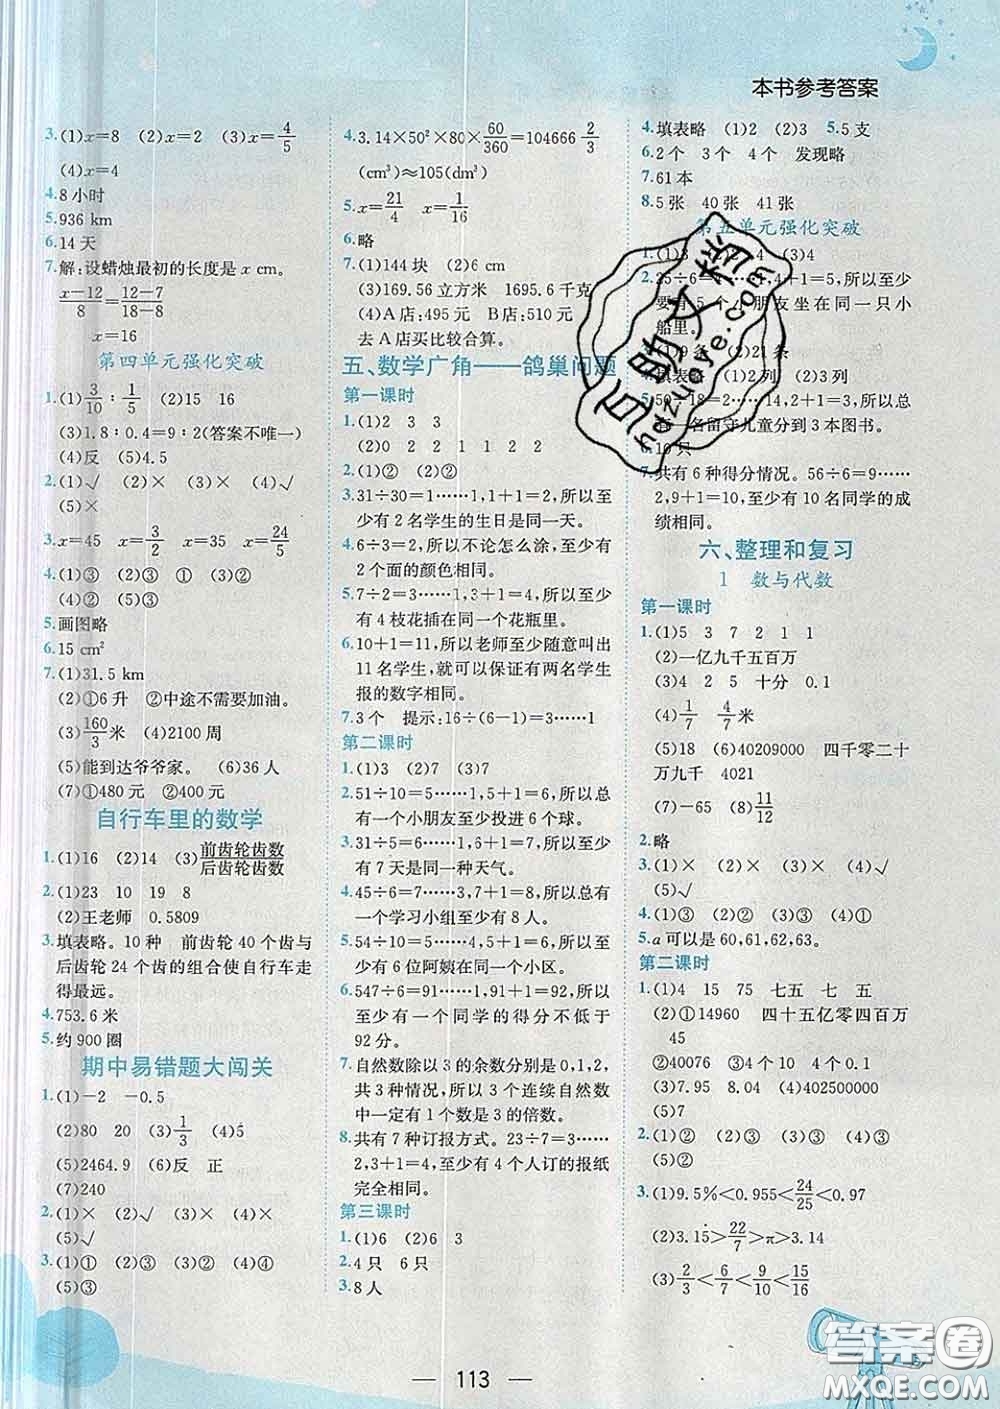 本书参考答案
3.(1)x=8 (2)x=2 (3)x=4/5
(4)x=4
4.8小时
5.936 km
6.14天
7.解:设蜡烛最初的长度是x cm。
(x-12)/8=(12-7)/(18-8)
x=16
第四单元强化突破
1.(1)3/10∶1/5 (2)15 16
(3)1.8∶0.4=9∶2(答案不唯一)
(4)反 (5)4.5
2.(1)√ (2)× (3)× (4)√
(5)×
3.x=45 x=3/2 x=35 x=24/5
4.(1)③ (2)③ (3)① (4)③
(5)② (6)②
5.画图略
6.15 cm²
7.(1)31.5 km
(2)①6升 ②中途不需要加油。
(3)160/3米 (4)2100周
(5)能到达爷爷家。 (6)36人
(7)①480元 ②400元
自行车里的数学
1.(1)16 (2)14 (3)前齿轮齿数/后齿轮齿数
2.(1)23 10 19 8
(2)王老师 0.5809
3.填表略。10种 前齿轮40个齿与
后齿轮24个齿的组合使自行车走
得最远。
4.753.6米
5.约900圈
期中易错题大闯关
1.(1)-2 -0.5
(2)80 20 (3)1/3 (4)5
(5)2464.9 (6)反 正
(7)240
2.(1)× (2)√ (3)× (4)×
(5)√
3.(1)① (2)③ (3)② (4)③
(5)③
4.3.14×50²×80×60/360=104666 2/3
(cm³)≈105(dm³)
5.x=21/4 x=1/16
6.略
7.(1)144块 (2)6cm
(3)169.56立方米 1695.6千克
(4)A店:495元 B店:510元
去A店买比较合算。
五、数学广角——鸽巢问题
第一课时
1.(1)2 3 3
(2)0 2 1 1 2 2
2.(1)× (2)√ (3)√
3.31÷30=1……1,1+1=2,所以至
少有2名学生的生日是同一天。
4.6÷3=2,所以不论怎么涂,至少有
2个面的颜色相同。
5.7÷2=3……1,3+1=4,所以至少
有4枝花插在同一个花瓶里。
6.10+1=11,所以老师至少随意叫出
11名学生,就可以保证有两名学生
报的数字相同。
7.3个 提示:16÷(6-1)=3……1
第二课时
1.(1)3 (2)7 (3)7
2.51÷10=5……1,5+1=6,所以总
有一个小朋友至少投进6个球。
3.31÷5=6……1,6+1=7,所以至少
有7天是同一种天气。
4.45÷6=7……3,7+1=8,所以总有
一个学习小组至少有8人。
5.54÷10=5……4,5+1=6,所以至少
有6位阿姨在同一个小区。
6.547÷6=91……1,91+1=92,所以至
少有一名同学的得分不低于
92分。
7.自然数除以3的余数分别是0,1,2,
共3种情况,所以3个连续自然数
中一定有1个数是3的倍数。
8.共有7种订报方式。23÷7=3……
2,3+1=4,所以至少4个人订的报纸
完全相同。
第三课时
1.(1)6 (2)6 3
2.4只 6只
3.8人
4.填表略 (1)2 (2)3 5.5支
6.2个 3个 4个 发现略
7.61本
8.5张 40张 41张
第五单元强化突破
1.(1)3 (3)4 (4)4
2.25÷6=4……1,4+1=5,所以至少
要有5个小朋友坐在同一只小
船里。
(1)9条 (2)21条
4.填表略 (1)2列 (2)3列
5.50÷18=2……14,2+1=3,所以总
有一名留守儿童分到3本图书。
6.10只
7.共有6种得分情况。56÷6=9……
2,9+1=10,至少有10名同学的成
绩相同。
六、整理和复习
1 数与代数
第一课时
1.(1)5 3 7 2 1 1
(2)一亿九千五百万
(3)4 2 5 十分 0.1
(4)1/7 4/7米
(5)18 (6)40209000 四千零二十
万九千 4021
(7)-65 (8)11/12
2.略
3.(1)× (2)× (3)× (4)×
(5)√
4.(1)③ (2)② (3)① (4)②
5.a可以是60,61,62,63。
第二课时
1.(1)4 15 75 七五 七 五
(2)①14960 四十五亿零四百万
45
②40076 ③四千零二 4
(3)7.95 8.04 (4)402500000
2.(1)② (2)③ (3)① (4)③
(5)③
3.(1)9.5%<0.955<24/25<0.97
(2)3.1̇>22/7>π>3.14
(3)2/3<6/7<9/10<15/16
作业帮
zuoye
答案圈
MXQE.COM
113